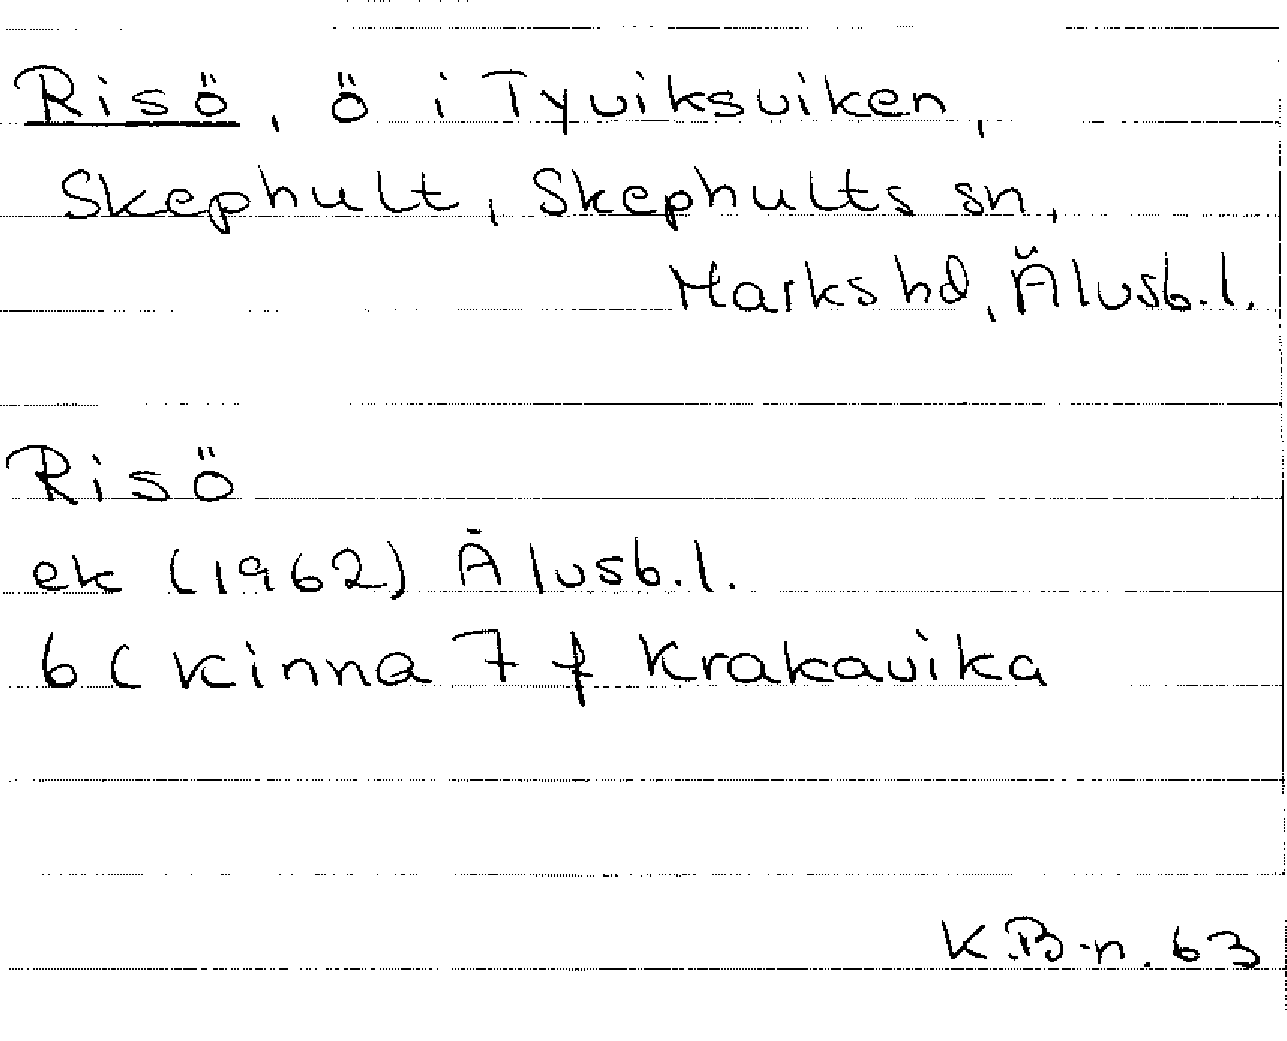 Risö, ö i Tyviksviken,
Skephult, Skephults sn,
Marks hd, Älvsb.l.
Risö
ek (1962) Älvsb.l.
6C Kinna 7 f Krakavika
K.B-n. 63